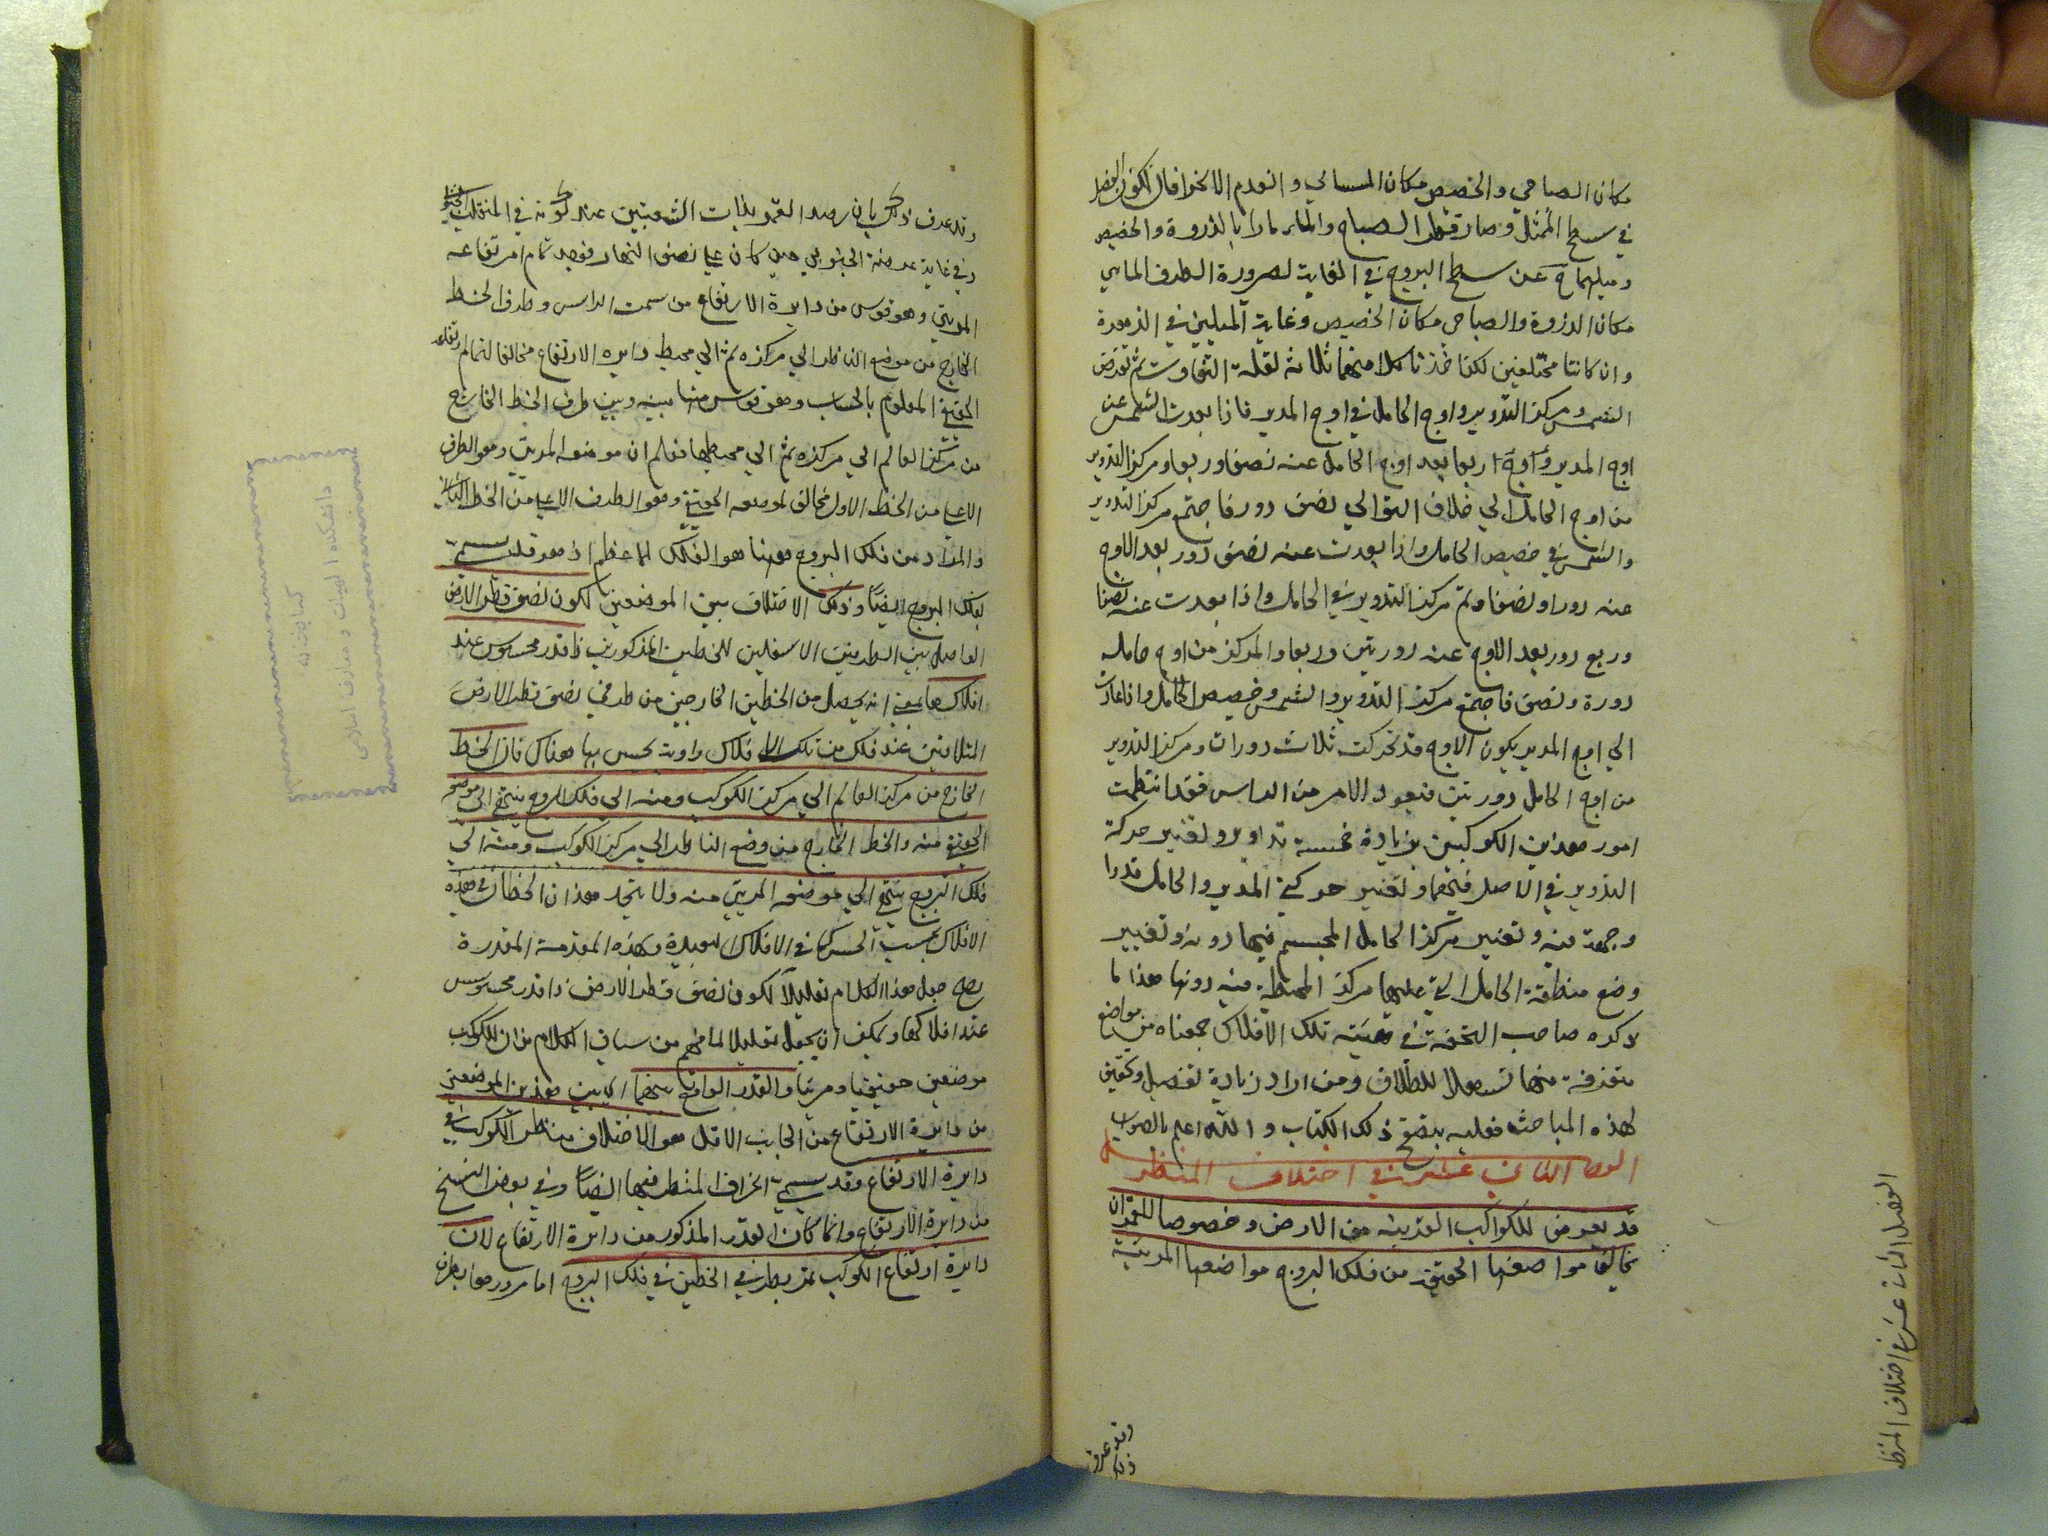 مكان الصباحي والحضيض مكان المسائي وانعدم الانحراف لكون الفصل
في سطح الممثل وصار قطر الصباح والمار مارا بالذروة والحضيض
وميلهما عن سطح البروج في الغاية لصيرورة الطرف المسائي
مكان الذروة والصباحي مكان الحضيض وغاية الميلين في الذروة
وان كانتا مختلفين لكنا اخذنا كلا منهما ثلاثة لقلة التفاوت ثم نفرض
الشمس ومركز التدوير واوج الحامل في اوج المدير فاذا بعدت الشمس عن
اوج المدير ربعا بعد اوج الحامل عنه نصفا وربعا ومركز التدوير
من اوج الحامل الى خلاف التوالي نصف دور فاجتمع مركز التدوير
والشمس في حضيض الحامل واذا بعدت عنه نصف دور بعد الاوج
عنه دورا ونصفا وتم مركز التدوير في الحامل واذا بعدت عنه نصفا
وربع دور بعد الاوج عنه دورتين وربعا والمركز من اوج حامله
دورة ونصف فاجتمع مركز التدوير والشمس وحضيض الحامل واذا عادت
الى اوج المدير يكون الاوج قد تحركت ثلاث دورات ومركز التدوير
من اوج الحامل دورتين فيعود الامر من الراس فقد انتظمت
امور هذين الكوكبين بزيادة خمسة تداوير وتغيير حركة
التدوير في الاصل فيهما وتغيير حركتي المدير والحامل قدرا
وجهة فيه وتغيير مركز الحامل المجسم فيها دونه وتغيير
وضع منطقة الحامل التي عليها مركز المحيطة فيه دونها هذا ما
ذكره صاحب التحفة في هيئة تلك الافلاك جمعناه من مواضع
متفرقة منها تسهيلا للطلاب ومن اراد زيادة تفصيل وتحقيق
لهذه المباحث فعليه بتصفح ذلك الكتاب والله اعلم بالصواب
الفصل الثاني عشر في اختلاف المنظر
قد يعرض للكواكب القريبة من الارض وخصوصا للقمر ان
تخالف مواضعها الحقيقية من فلك البروج مواضعها المرئية
وقد عرف ذلك
الفصل الثاني عشر في اختلاف المنظر
وقد عرف ذلك بان رصد القمر بذات الشعبتين عند كونه في المنقلب الشتوي
وفي غاية عرضه الجنوبي حين كان على نصف النهار فوجد تمام ارتفاعه
المرئي وهو قوس من دايرة الارتفاع من سمت الراس وطرف الخط
الخارج من موضع الناظر الى مركزه ثم الى محيط دايرة الارتفاع مخالفا لتمام ارتفاعه
الحقيقي المعلوم بالحساب وهو قوس منها بينه وبين طرف الخط الخارج
من مركز العالم الى مركزه ثم الى محيطها فعلم ان موضعه المرئي وهو الطرف
الاعلى من الخط الاول مخالف لموضعه الحقيقي وهو الطرف الاعلى من الخط الثاني
والمراد من فلك البروج ههنا هو الفلك الاعظم اذ هو قد يسمى
بفلك البروج ايضا وذلك الاختلاف بين الموضعين لكون نصف قطر الارض
الفاصل بين الطرفين الاسفلين للخطين المذكورين ذا قدر محسوس عند
افلاكها بمعنى انه يحصل من الخطين الخارجين من طرفي نصف قطر الارض
المتلاقيين عند فلك من تلك الافلاك زاوية يحس بها هناك فان الخط
الخارج من مركز العالم الى مركز الكوكب ومنه الى فلك البروج ينتهي الى موضعه
الحقيقي منه والخط الخارج من وضع الناظر الى مركز الكوكب ومنه الى
فلك البروج ينتهي الى موضعه المرئي منه ولا يتحد هذان الخطان في هذه
الافلاك بحسب الحس كما في الافلاك البعيدة وبهذه المقدمة المقدرة
يصح جعل هذا الكلام تعليلا لكون نصف قطر الارض ذا قدر محسوس
عند افلاكها ويمكن ان يجعل تعليلا لما فهم من سياق الكلام من ان للكوكب
موضعين حقيقيا ومرئيا والقدر الواقع بينهما اي بين هذين الموضعين
من دايرة الارتفاع من الجانب الاقل هو الاختلاف منظر الكوكب في
دايرة الارتفاع وقد يسمى انحراف المنظر فيها ايضا وفي بعض النسخ
من دايرة الارتفاع وانما كان القدر المذكور من دايرة الارتفاع لان
دايرة ارتفاع الكوكب تمر بطرفي الخطين في فلك البروج اما مرورها بطرف
كتابخانه
دانشكده الهيات و معارف اسلامى